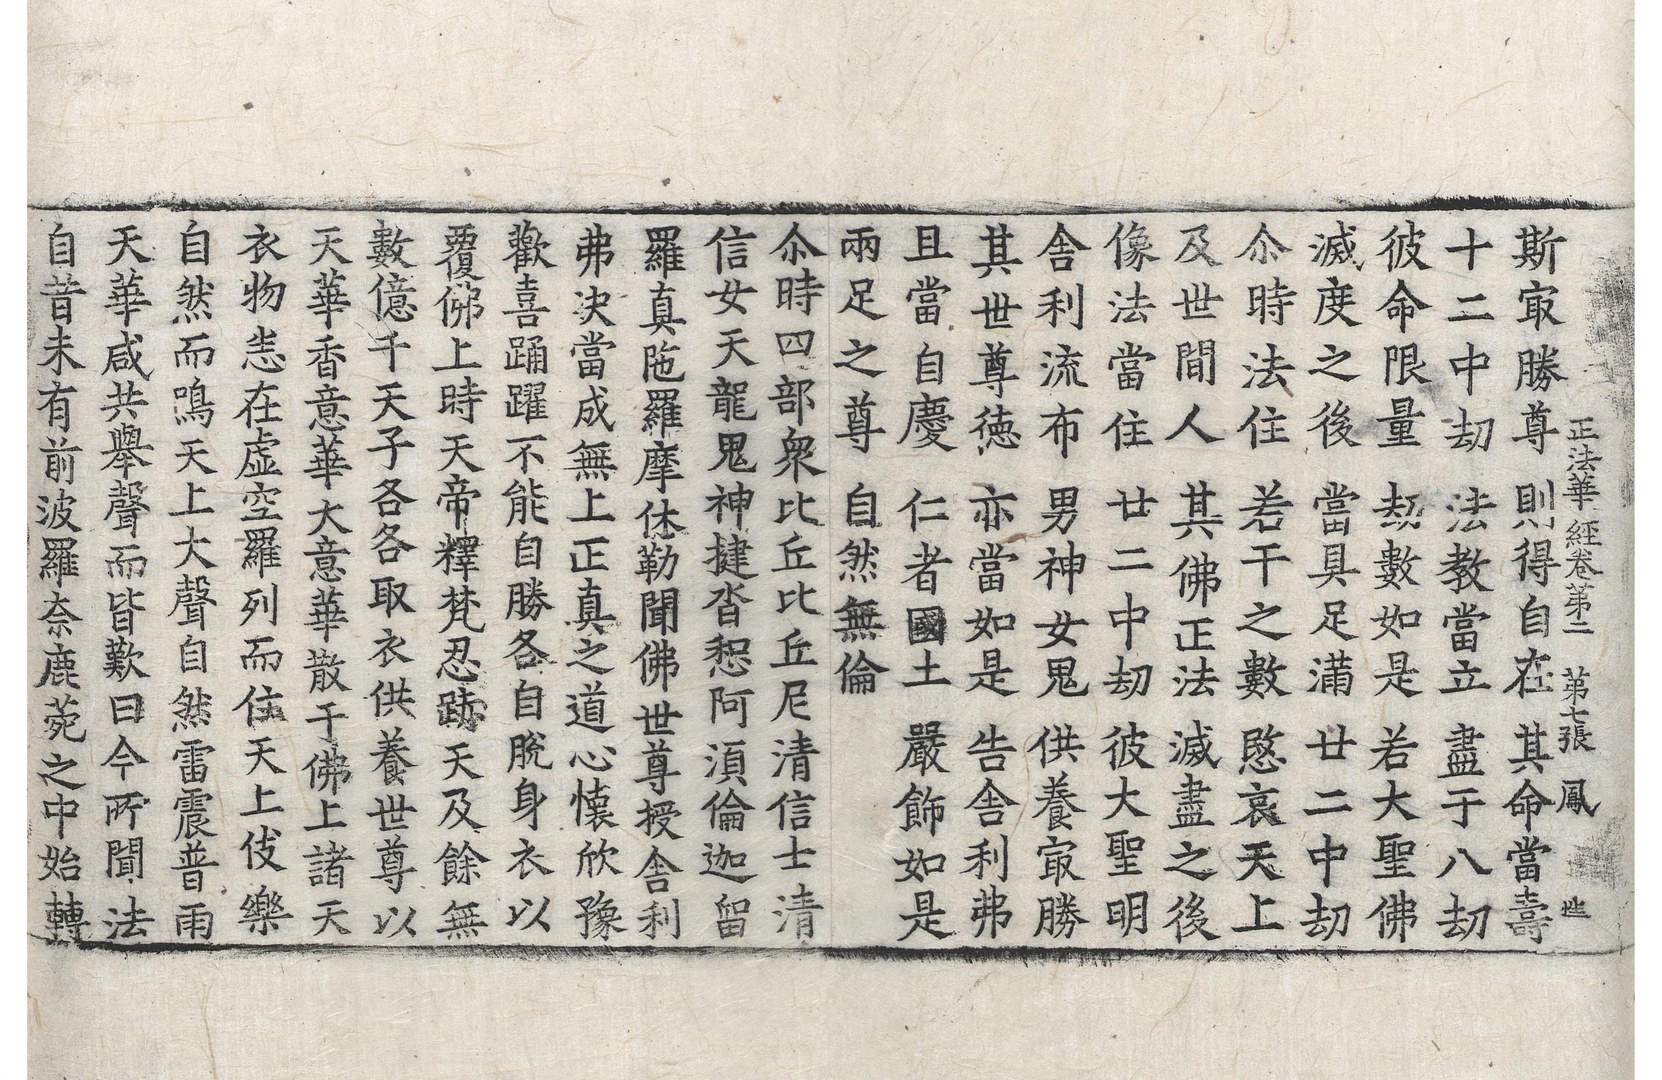 正法華經卷第二 第七張 鳳
斯㝡勝尊 則得自在 其命當壽
十二中劫 法教當立 盡于八劫
彼命限量 劫數如是 若大聖佛
滅度之後 當具足滿 廿二中劫
尒時法住 若干之數 愍哀天上
及世間人 其佛正法 滅盡之後
像法當住 廿二中劫 彼大聖明
舍利流布 男神女鬼 供養㝡勝
其世尊德 亦當如是 告舍利弗
且當自慶 仁者國土 嚴飾如是
兩足之尊 自然無倫
尒時四部衆比丘比丘尼清信士清
信女天龍鬼神揵沓惒阿須倫迦留
羅真陁羅摩休勒聞佛世尊授舍利
弗決當成無上正真之道心懷欣豫
歡喜踊躍不能自勝各自脫身衣以
覆佛上時天帝釋梵忍跡天及餘無
數億千天子各各取衣供養世尊以
天華香意華大意華散于佛上諸天
衣物悉在虛空羅列而住天上伎樂
自然而鳴天上大聲自然雷震普雨
天華咸共舉聲而皆歎曰今所聞法
自昔未有前波羅奈鹿菀之中始轉